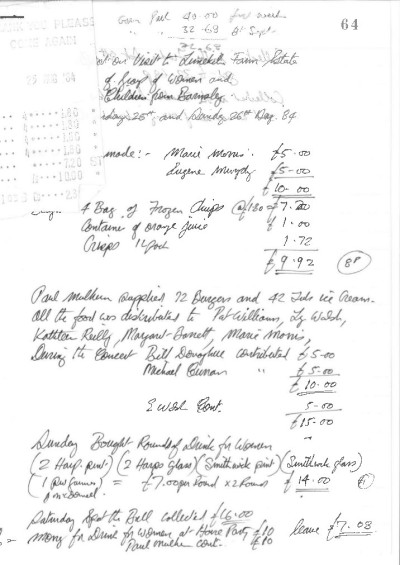 Gave Paul 40.00 for week
" " 32-68 8th Sept.
32-68
64
THANK YOU PLEASE
COME AGAIN
on Visit to Limekiln Farm Estate
of Group of Women and
Children from Barnsley
25th, and Sunday 26th Aug. 84
4 1.80
1.80
1.80
1.80
7.20 ST
made:- Marie Morris. £5-00
Eugene Murphy £5-00
£10-00
4 Bag of Frozen Chips @ £1.80 = £7.20
Container of orange juice £1.00
Crisps 1 Pack 1.72
£9.92
Paul Mulhern supplied 72 Burgers and 42 Tubs ice Cream.
All the food was distributed to Pat Williams, Lz Walsh,
Kathleen Reilly, Margaret Bonett, Marie Morris,
During the Concert Bill Donoghue contributed £5-00
Michael " £5-00
£10-00
E Walsh Cont. 5-00
£15-00
Sunday Bought Round of Drink for Women
(2 Harp. pint) (2 Harps Glass) (Smithwick pint) (Smithwick glass)
= £7.00 per Round x 2 Rounds £14.00
Saturday Spot the Ball collected £16.00
money for Drink for Women at House Party £10 leave £7.08
Paul Mulhern cont. £10